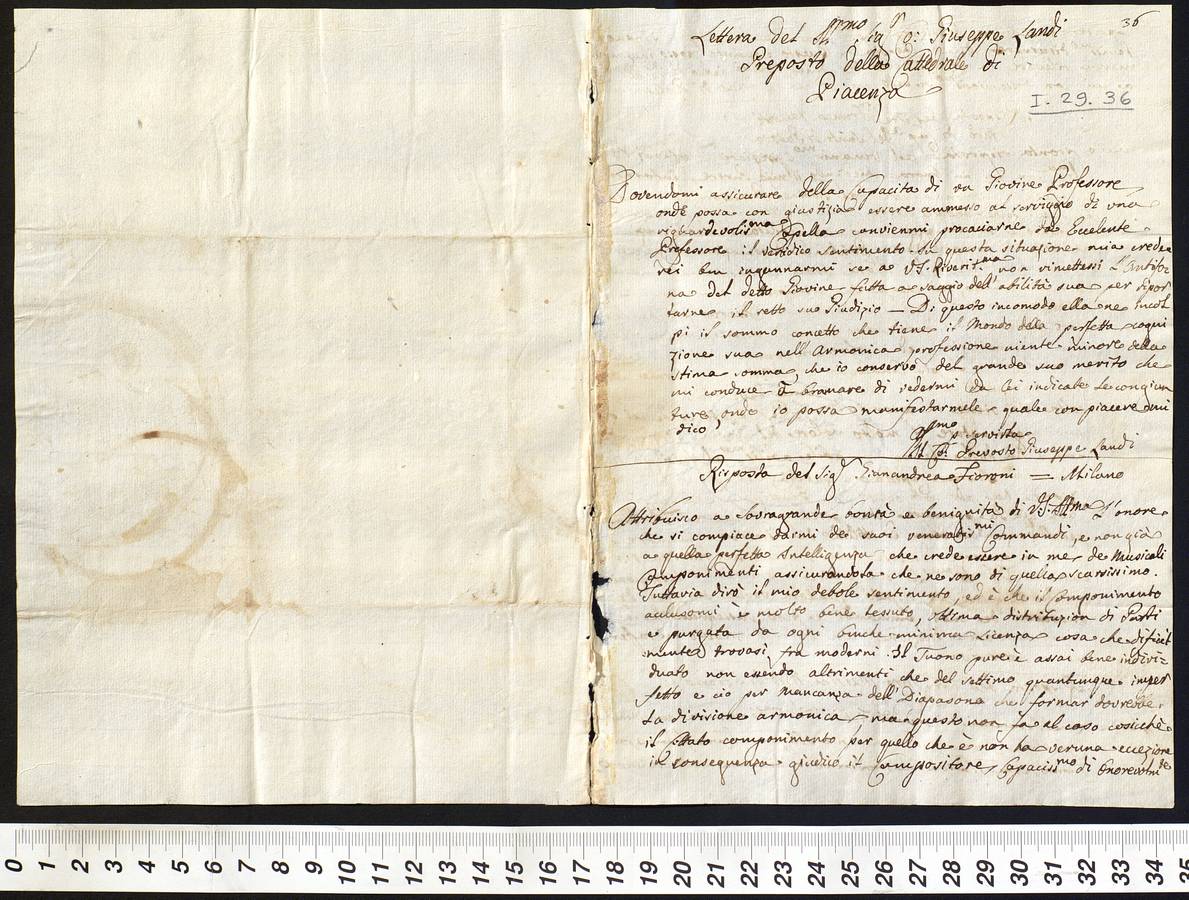 36
Lettera del Ill.mo Sig.r Co: Giuseppe Landi
Preposto della Cattedrale di
Piacenza
I. 29. 36
Dovendomi assicurare della Capacita di un Giovine Professore
onde possa con giustizia essere ammesso al serviggio di una
riguardevolis.ma Capella conviemmi procaciarne da Eccelente
Professore il veridico sentimento. In questa situazione mia crede
rei ben ingannarmi se a V.S. Riverit.ma non rimettessi l'Antifo
na del detto Giovine fatta a saggio dell'abilità sua per ripor
tarne il retto suo Giudizio — Di questo incomodo ella ne incol
pi il sommo concetto che tiene il Mondo della perfetta cogni
zione sua nell'Armonica professione niente minore della
stima somma, che io conservo del grande suo merito che
mi conduce à bramare di vedermi da lei indicate le congiun
ture, onde io possa manifestarmele quale con piacere mi
dico
Servitore
Prevosto Giuseppe Landi
Risposta del Sig.r Gianandrea Fioroni = Milano
Attribuisco a sovragrande bontà e benignità di V.S. Ill.ma l'onore
che si compiace darmi de suoi veneratis.mi Commandi, e non già
a quella perfetta Intelligenza che crede essere in me de Musicali
Componimenti assicurandola che ne sono di quella scarsissimo.
Tuttavia dirò il mio debole sentimento, ed è che il Componimento
acclusomi è molto bene tessuto, ottima distribuzion di Parti
e purgata da ogni benche minima licenza cosa che dificil
mente trovasi fra moderni. Il Tuono pure è assai bene indivi=
duato non essendo altrimenti che del settimo quantunque imper
fetto e cio per mancanza dell'Diapasona che formar dovrebbe
la divisione armonica, ma questo non fa al caso cosicchè
il sittato componimento per quello che è non ha veruna eccezione
in conseguenza giudico il Compositore Capaciss.mo di